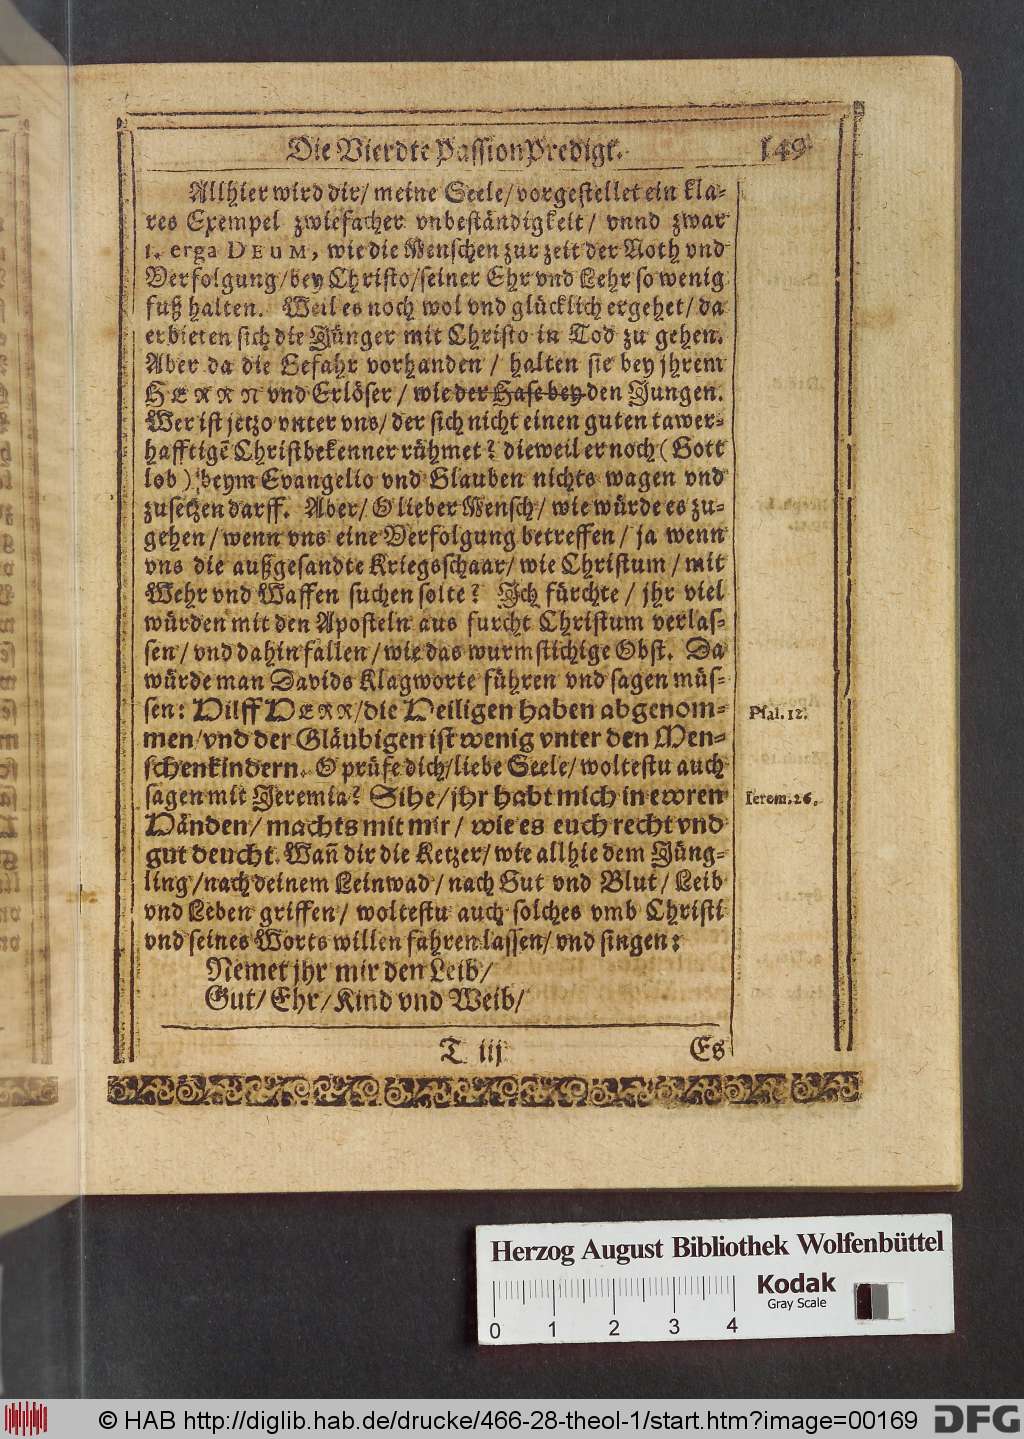 Die Vierdte PassionPredigt.
149
Allhier wird dir/ meine Seele/ vorgestellet ein kla-
res Exempel zwiefacher vnbeständigkeit/ vnnd zwar
1. erga DEUM, wie die Menschen zur zeit der Noth vnd
Verfolgung/ bey Christo/ seiner Ehr vnd Lehr so wenig
fuß halten. Weil es noch wol vnd glücklich ergehet/ da
erbieten sich die Jünger mit Christo in Tod zu gehen.
Aber da die Gefahr vorhanden/ halten sie bey jhrem
HERRN vnd Erlöser/ wie der Hase bey den Jungen.
Wer ist jetzo vnter vns/ der sich nicht einen guten tawer-
hafftigē Christbekenner rühmet? dieweil er noch (Gott
lob) beym Evangelio vnd Glauben nichts wagen vnd
zusetzen darff. Aber/ O lieber Mensch/ wie würde es zu-
gehen/ wenn vns eine Verfolgung betreffen/ ja wenn
vns die außgesandte Kriegsschaar/ wie Christum/ mit
Wehr vnd Waffen suchen solte? Ich fürchte/ jhr viel
würden mit den Aposteln aus furcht Christum verlas-
sen/ vnd dahin fallen/ wie das wurmstichige Obst. Da
würde man Davids Klagworte führen vnd sagen müs-
sen: Hilff HERR/ die Heiligen haben abgenom-
men/ vnd der Gläubigen ist wenig vnter den Men-
schenkindern. O prüfe dich/ liebe Seele/ woltestu auch
sagen mit Jeremia? Sihe/ jhr habt mich in ewren
Händen/ machts mit mir/ wie es euch recht vnd
gut deucht. Wañ dir die Ketzer/ wie allhie dem Jüng-
ling/ nach deinem Leinwad/ nach Gut vnd Blut/ Leib
vnd Leben griffen/ woltestu auch solches vmb Christi
vnd seines Worts willen fahren lassen/ vnd singen:
Nemet jhr mir den Leib/
Gut/ Ehr/ Kind vnd Weib/
Psal. 12.
Ierem. 26.
T iij
Es
Herzog August Bibliothek Wolfenbüttel
Kodak
Gray Scale
0 1 2 3 4
© HAB http://diglib.hab.de/drucke/466-28-theol-1/start.htm?image=00169
DFG